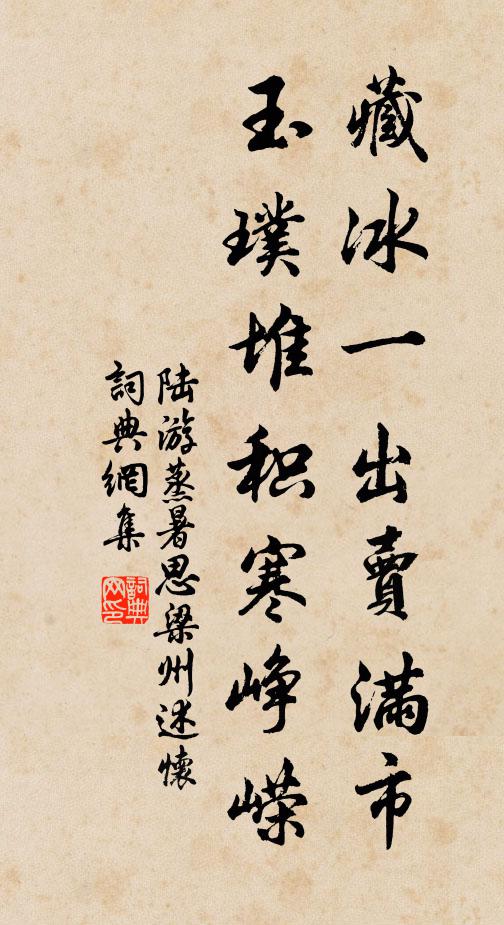 藏冰一出賣滿市
玉璞堆积寒峥嵘
陆游蒸暑思梁州述懷
詞典網集
詞典
网印